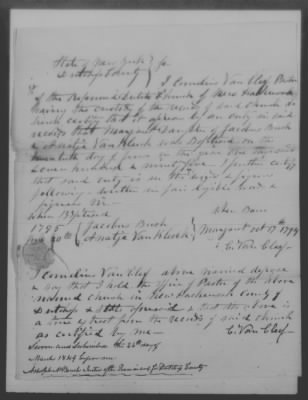 State of New York } ss
Dutchess County }
I Cornelius Van Cleef Pastor
of the Reformed Dutch Church of New Hackensack
having the custody of the records of said church do
hereby certify that it appears by an entry in said
records that Margaret daughter of Jacobus Bush
& Anatje Van Kleeck was Baptized on the
day of in the year one thousand
seven hundred & ninety five. I further certify
that said entry is in the words & figures
following written in fair legible words &
figures Viz
When Baptized When Born
1795 { Jacobus Bush Margaret Oct 17th 1794
20th { Anatje Van Kleeck C. Van Cleef
I Cornelius Van Cleef above named depose
& say that I hold the office of Pastor of the above
named church in New Hackensack County of
Dutchess & State aforesaid & that the above is
a true extract from the records of said church
as certified by me C. Van Cleef
Sworn and Subscribed the 26th day of
March 1849 before me